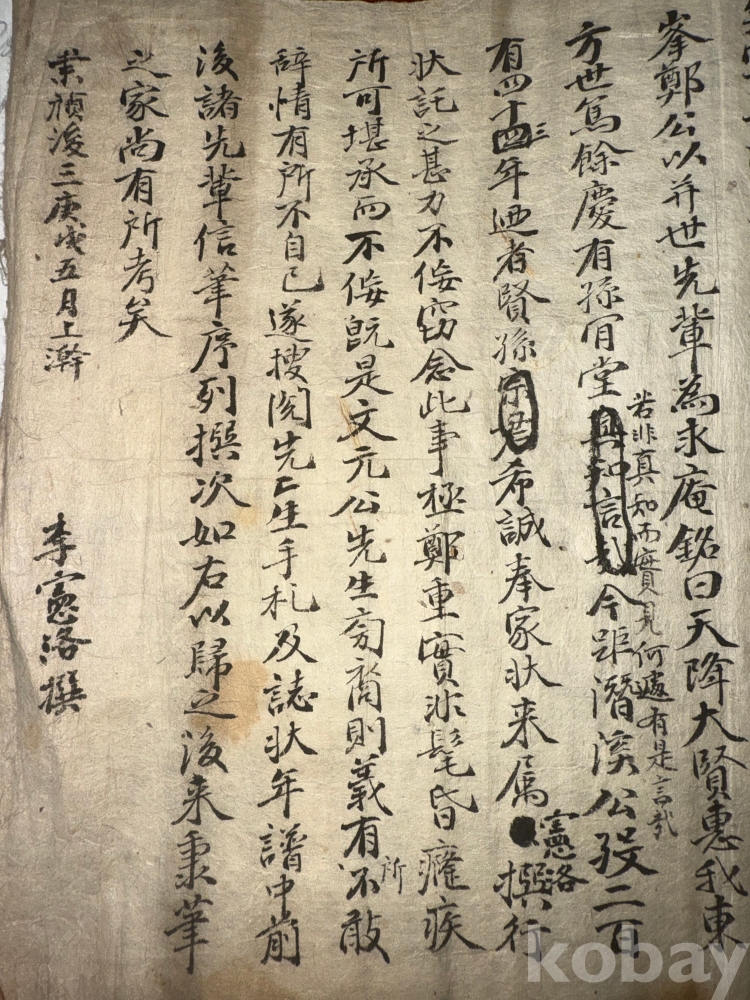 峯鄭公以并世先輩為求庵銘曰天降大賢惠我東
方世篤餘慶有孫肎堂真知言哉今距潛溪公歿二百
若非真知而實見何處有是言哉
有四十四年廼者賢孫宗君希誠奉家狀来属撰行
三
憲洛
狀託之甚力不侫窃念此事極鄭重實非髦昏癃疾
所可堪承而不侫旣是文元公先生旁裔則義有不敢
所
辞情有所不自已遂搜閲先生手札及誌狀年譜中前
後諸先輩信筆序列撰次如右以歸之後来秉筆
之家尚有所考矣
崇禎後三庚戌五月上澣
李憲洛撰
kobay